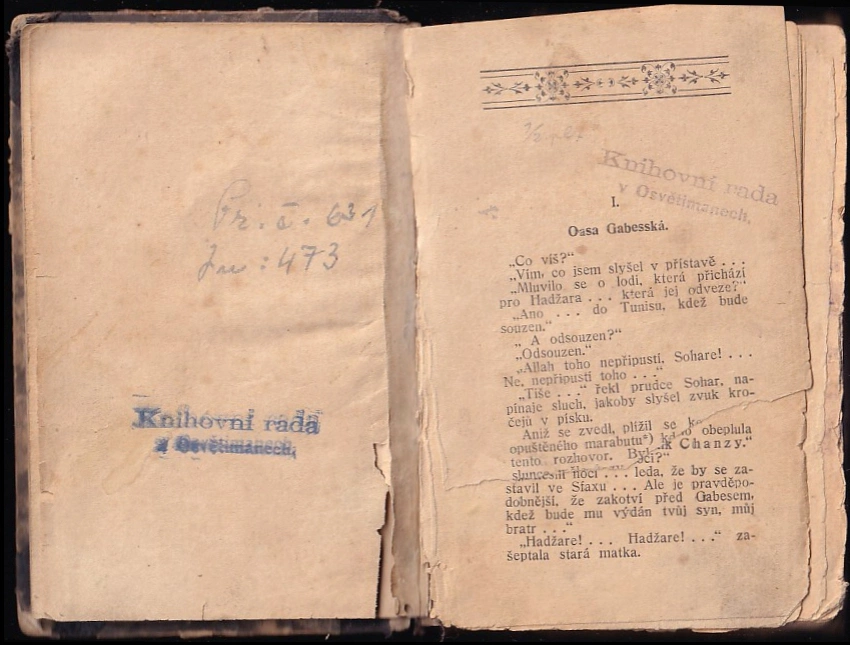 Př. č. 631
Inv: 473
Knihovní rada
v Osvětimanech,
Knihovní rada
v Osvětimanech,
I.
Oasa Gabesská.
„Co víš?“
„Vím, co jsem slyšel v přístavě . . .
„Mluvilo se o lodi, která přichází
pro Hadžara . . . která jej odveze?“
„Ano . . . do Tunisu, kdež bude
souzen.“
„ A odsouzen?“
„Odsouzen.“
„Allah toho nepřipustí, Sohare! . . .
Ne, nepřipustí toho . . .“
„Tiše . . .“ řekl prudce Sohar, na-
pínaje sluch, jakoby slyšel zvuk kro-
čejů v písku.
Aniž se zvedl, plížil se
opuštěného marabutu*) obeplula
tento rozhovor. Chanzy.“
noci . . . leda, že by se za-
stavil ve Sfaxu . . . Ale je pravděpo-
dobnější, že zakotví před Gabesem,
kdež bude mu výdán tvůj syn, můj
bratr . . .“
„Hadžare! . . . Hadžare! . . .“ za-
šeptala stará matka.